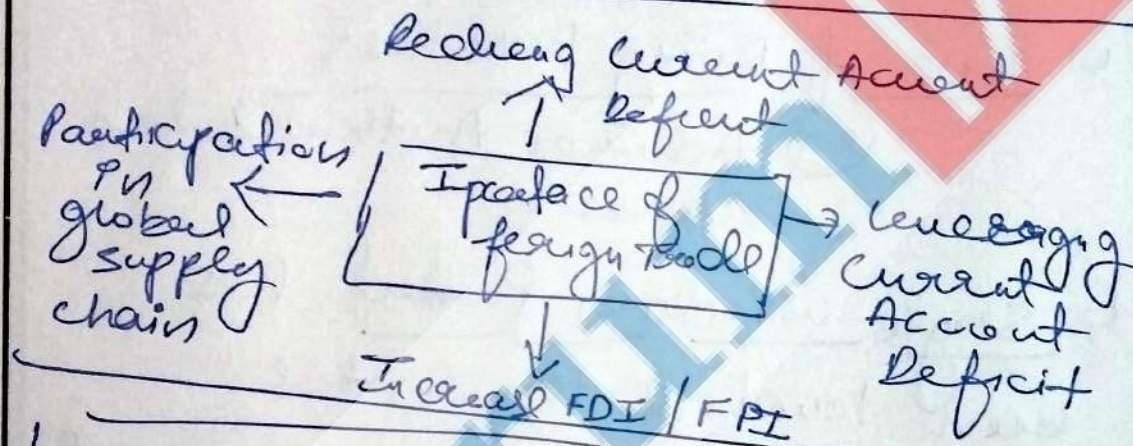 Reducing Current Account
Deficit
Participation
in
global
supply
chain
Importance of
foreign Trade
Leveraging
Current
Account
Deficit
Increase FDI / FPI